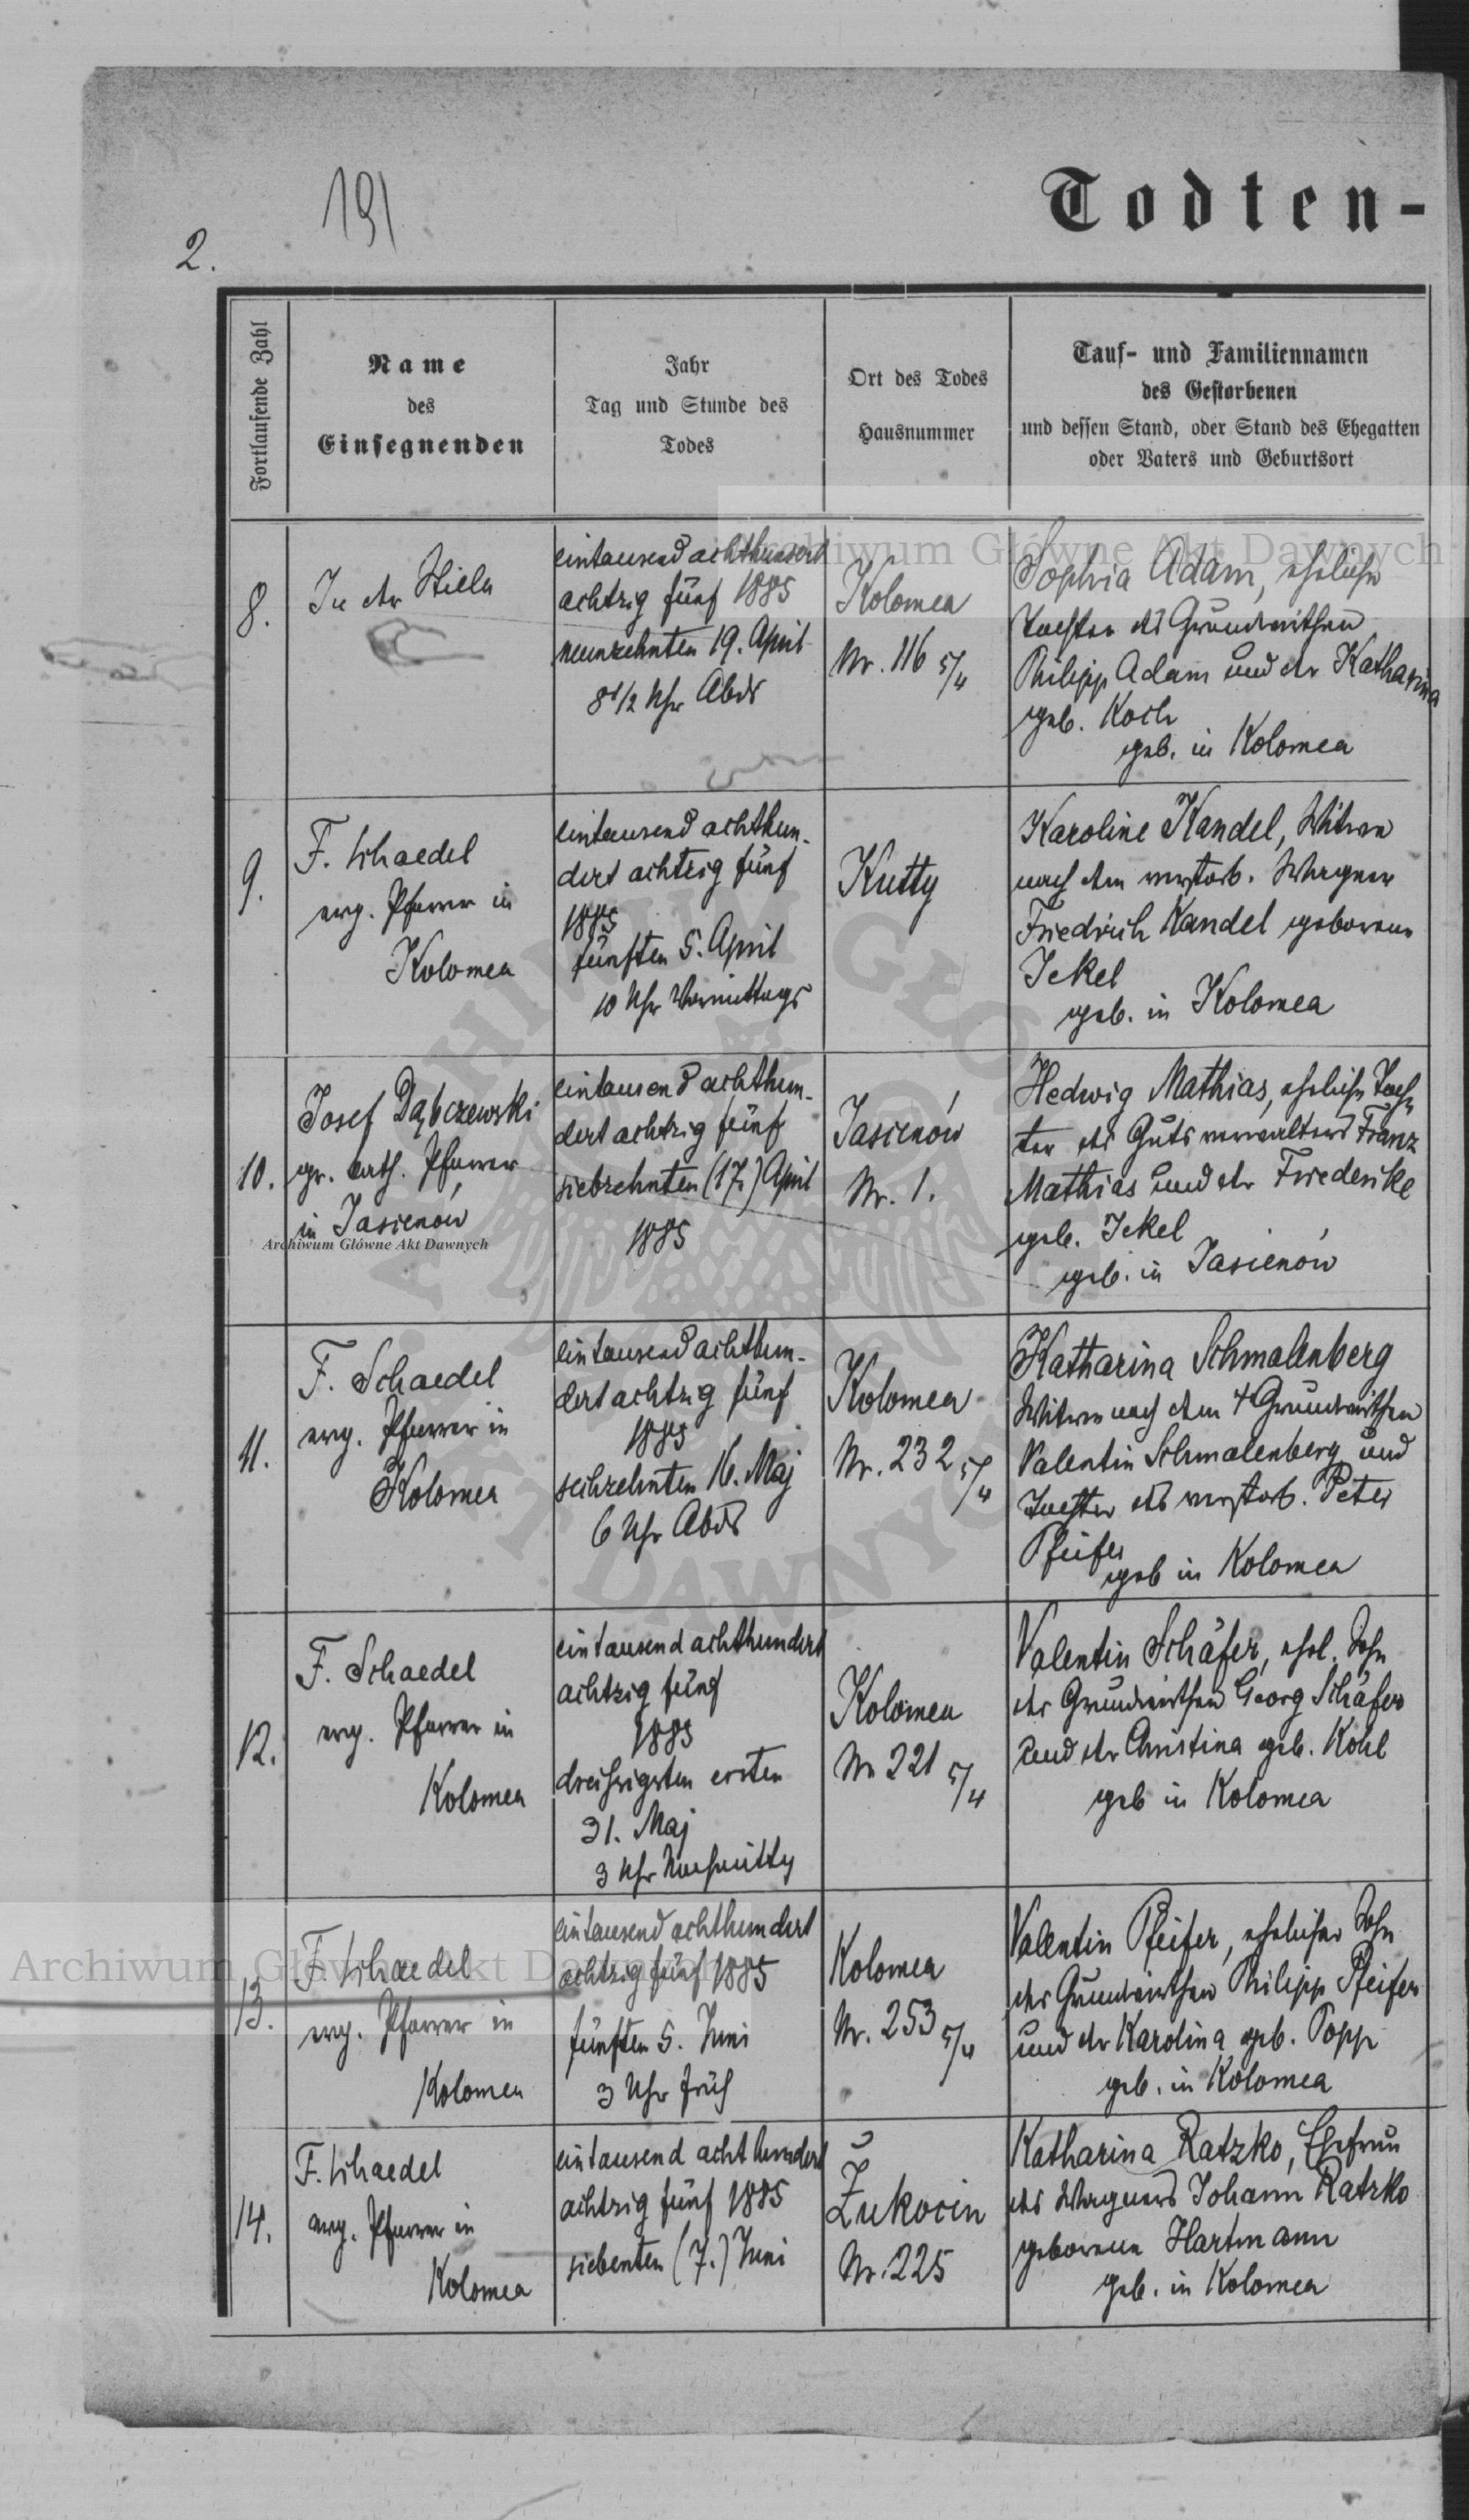 191
2.
Todten-
Fortlaufende Zahl
Name
des
Einsegnenden
Jahr
Tag und Stunde des
Todes
Ort des Todes
Hausnummer
Tauf- und Familiennamen
des Gestorbenen
und dessen Stand, oder Stand des Ehegatten
oder Vaters und Geburtsort
8.
In der Stille
eintausend achthundert
achtzig fünf 1885
neunzehnten 19. April
8 1/2 Uhr Abds
Kolomea
Nr. 116 5/4
Sophia Adam, eheliche
Tochter des Grundwirthen
Philipp Adam und der Katharina
geb. Koch
geb. in Kolomea
9.
F. Schaedel
evg. Pfarrer in
Kolomea
eintausend achthun-
dert achtzig fünf
1885
fünften 5. April
10 Uhr Vormittags
Kutty
Karoline Kandel, Witwe
nach dem verstorb. Wagner
Friedrich Kandel geborene
Jekel
geb. in Kolomea
10.
Josef Dąbczewski
gr. cath. Pfarrer
in Jasienów
eintausend achthun-
dert achtzig fünf
siebzehnten (17.) April
1885
Jasienów
Nr. 1.
Hedwig Mathias, eheliche Toch-
ter des Gutsverwalters Franz
Mathias und der Friederike
geb. Jekel
geb. in Jasienów
11.
F. Schaedel
evg. Pfarrer in
Kolomea
eintausend achthun-
dert achtzig fünf
1885
sechzehnten 16. Maj
6 Uhr Abds
Kolomea
Nr. 232 5/4
Katharina Schmalenberg
Witwe nach dem + Grundwirthen
Valentin Schmalenberg und
Tochter des verstorb. Peter
Pfeifer
geb in Kolomea
12.
F. Schaedel
evg. Pfarrer in
Kolomea
eintausend achthundert
achtzig fünf
1885
dreißigsten ersten
31. Maj
3 Uhr Nachmittg
Kolomea
Nr 221 5/4
Valentin Schäfer, ehel. Sohn
des Grundwirthen Georg Schäfer
und der Christina geb. Kohl
geb in Kolomea
13.
F. Schaedel
evg. Pfarrer in
Kolomea
eintausend achthundert
achtzig fünf 1885
fünften 5. Juni
3 Uhr früh
Kolomea
Nr. 253 5/4
Valentin Pfeifer, ehelicher Sohn
des Grundwirthen Philipp Pfeifer
und der Karolina geb. Popp
geb. in Kolomea
14.
F. Schaedel
evg. Pfarrer in
Kolomea
eintausend achthundert
achtzig fünf 1885
siebenten (7.) Juni
Żukocin
Nr. 225
Katharina Ratzko, Ehefrau
des Wagners Johann Ratzko
geborene Hartmann
geb. in Kolomea
Archiwum Główne Akt Dawnych
Archiwum Główne Akt Dawnych
Archiwum Główne Akt Dawnych